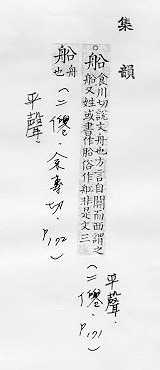 集韻
船食川切說文舟也方言自關而西謂之
船又姓或書作舩俗作舡非是文三
平聲.
(二僊.P.171)
船舟
也
(二僊.余專切.
P.172)
平聲.